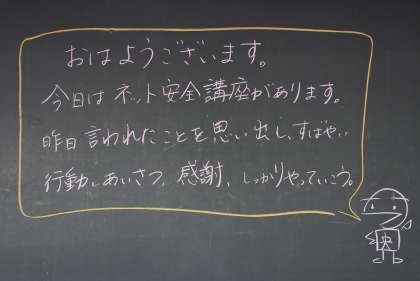 おはようございます。
今日はネット安全講座があります。
昨日言われたことを思い出し、すばやい
行動、あいさつ、感謝、しっかりやっていこう。